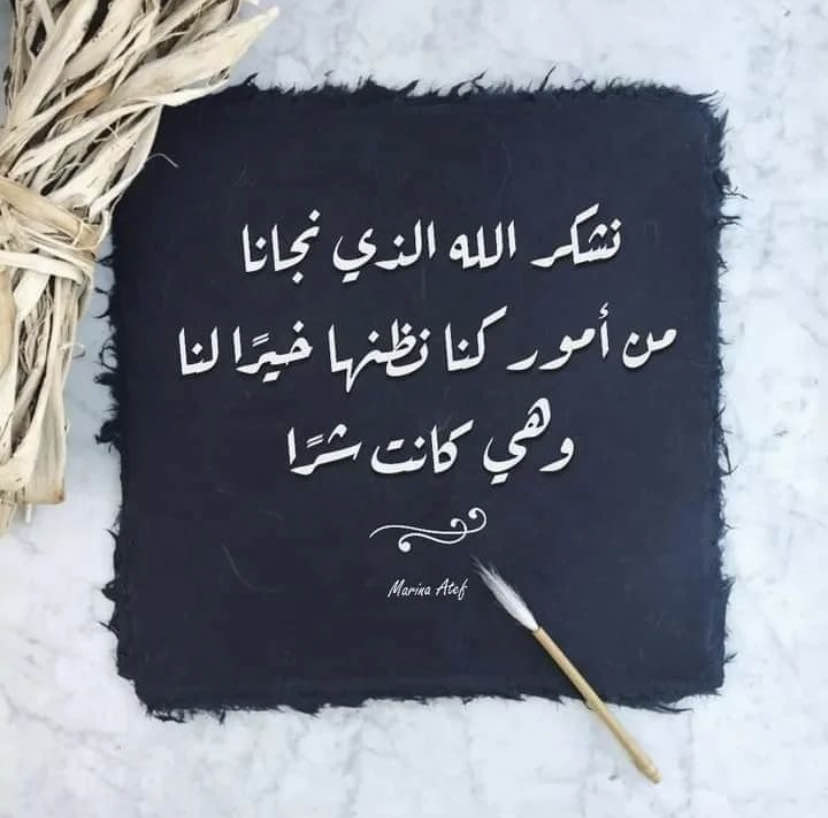 نشكر الله الذي نجانا
من أمور كنا نظنها خيرًا لنا
وهي كانت شرًا
Marina Atef